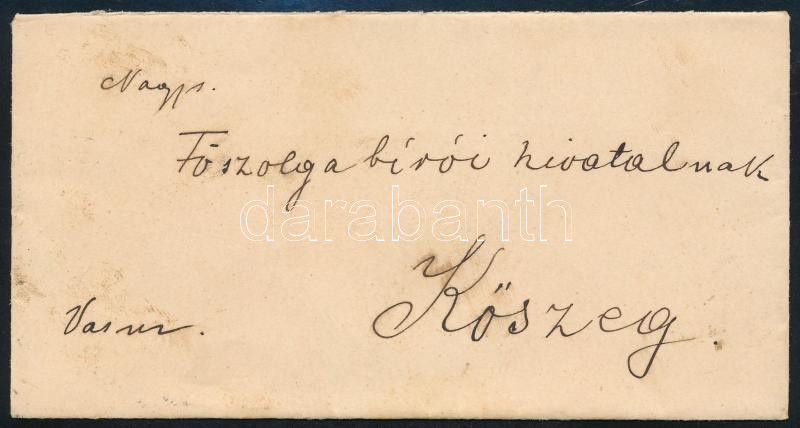 Nagys.
Főszolgabírói hivatalnak
darabanth
Kőszeg.
Vasm.